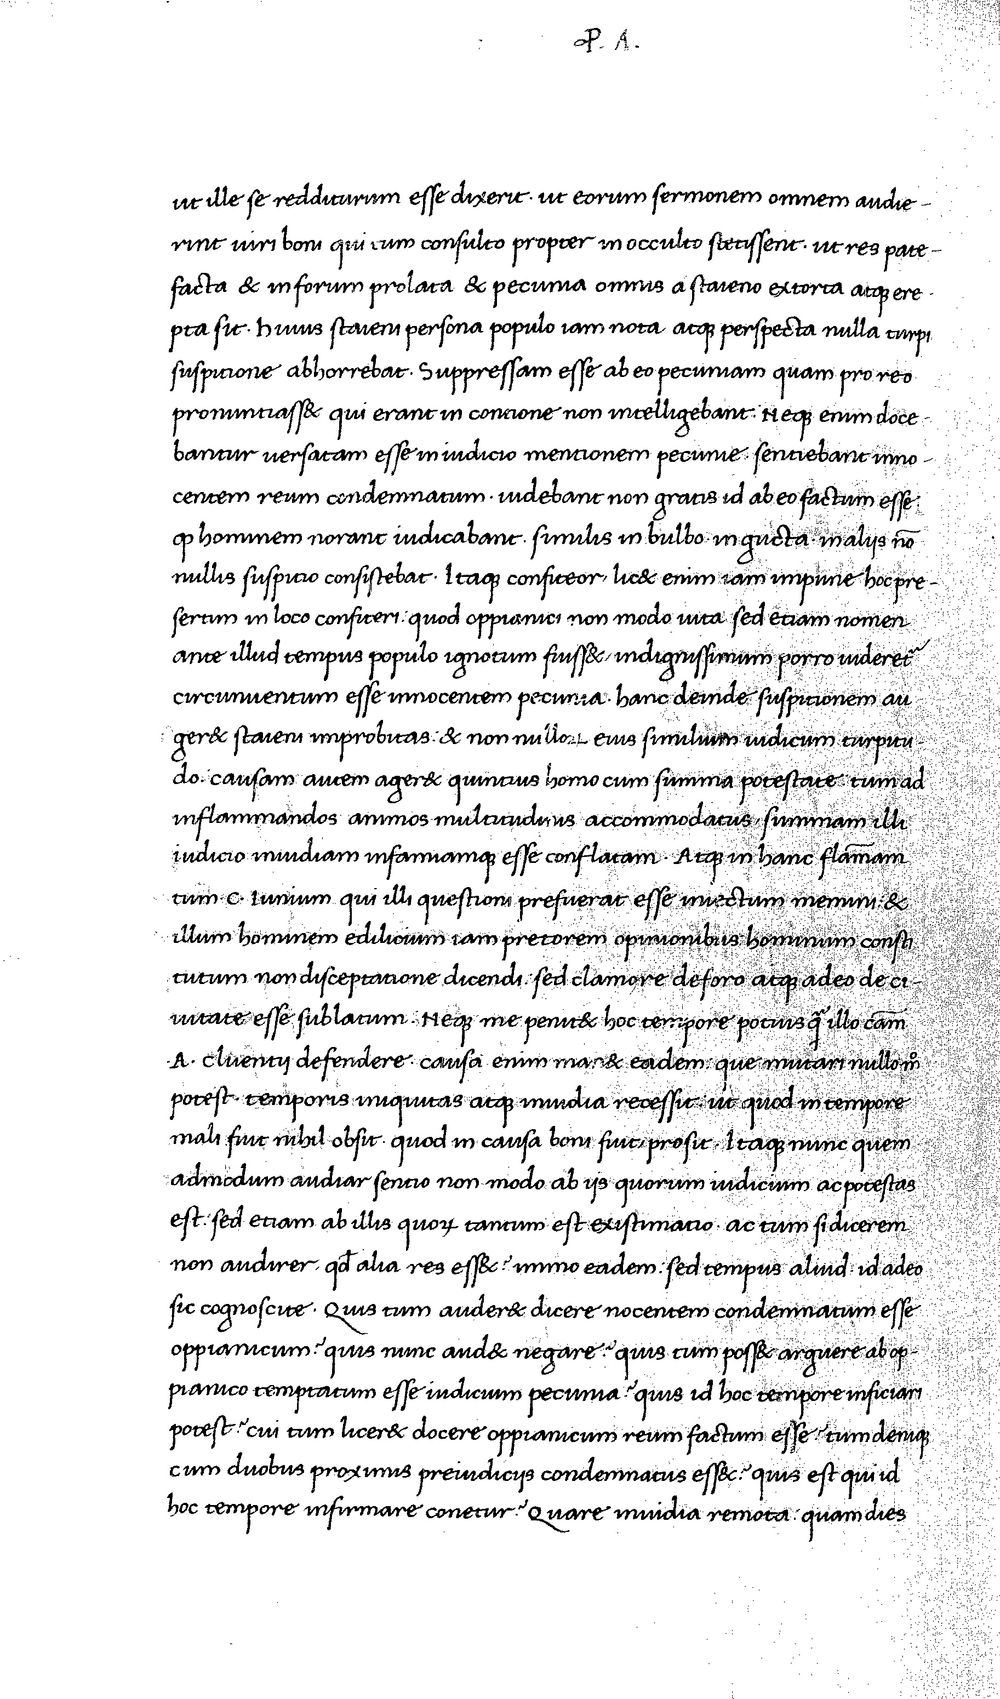 P. A.
ut ille se redditurum esse dixerit. ut eorum sermonem omnem audie-
rint uiri boni qui tum consulto propter in occulto stetissent. ut res pate-
facta & in forum prolata & pecunia omnis a staieno extorta atq; ere-
pta sit. huius staieni persona populo iam nota atq; perspecta nulla turpi
suspitione abhorrebat. Suppressam esse ab eo pecuniam quam pro reo
pronuntiass& qui erant in contione non intelligebant. Neq; enim doce-
bantur uersatam esse in iudicio mentionem pecunie. sentiebant inno-
centem reum condemnatum. uidebant non gratis id ab eo factum esse
qͥ hominem norant iudicabant. similis in bulbo. in gutta. in aliis nō
nullis suspitio consistebat. Itaq; confiteor, lic& enim iam impune hoc pre-
sertim in loco confiteri. quod oppianici non modo uita sed etiam nomen
ante illud tempus populo ignotum fuiss&, indignissimum porro uideret͛
circumuentum esse innocentem pecunia. hanc deinde suspitionem au
ger& staieni improbitas. & non nullo℞ eius similium iudicum turpitu-
do. causam autem ager& quintius homo cum summa potestate. tum ad
inflammandos animos multitudinis accommodatus, summam illi
iudicio inuidiam infamiamq; esse conflatam. Atq; in hanc flam̄am
tum C. Iunium qui illi questioni prefuerat esse iniectum memini. &
illum hominem edilicium iam pretorem opinionibus hominum consti
tutum non disceptatione dicendi. sed clamore de foro atq; adeo de ci-
uitate esse sublatum. Neq; me penit& hoc tempore potius q̃ illo cām
A. Cluentij defendere. causa enim man& eadem. que mutari nullo mͦ
potest. temporis iniquitas atq; inuidia recessit. ut quod in tempore
mali fuit nihil obsit. quod in causa boni fuit, prosit. Itaq; nunc quem
admodum audiar sentio non modo ab ijs quorum iudicium ac potestas
est. sed etiam ab illis quoꝝ tantum est existimatio. ac tum si dicerem
non audirer. qđ alia res ess&? immo eadem. sed tempus aliud. id adeo
sic cognoscite. Quis tum auder& dicere nocentem condemnatum esse
oppianicum? quis nunc aud& negare? quis tum poss& arguere ab op-
pianico temptatum esse iudicium pecunia? quis id hoc tempore inficiari
potest? cui tum licer& docere oppianicum reum factum esse? tum deniq;
cum duobus proximis preiudicijs condemnatus ess&? quis est qui id
hoc tempore infirmare conetur? Quare inuidia remota. quam dies